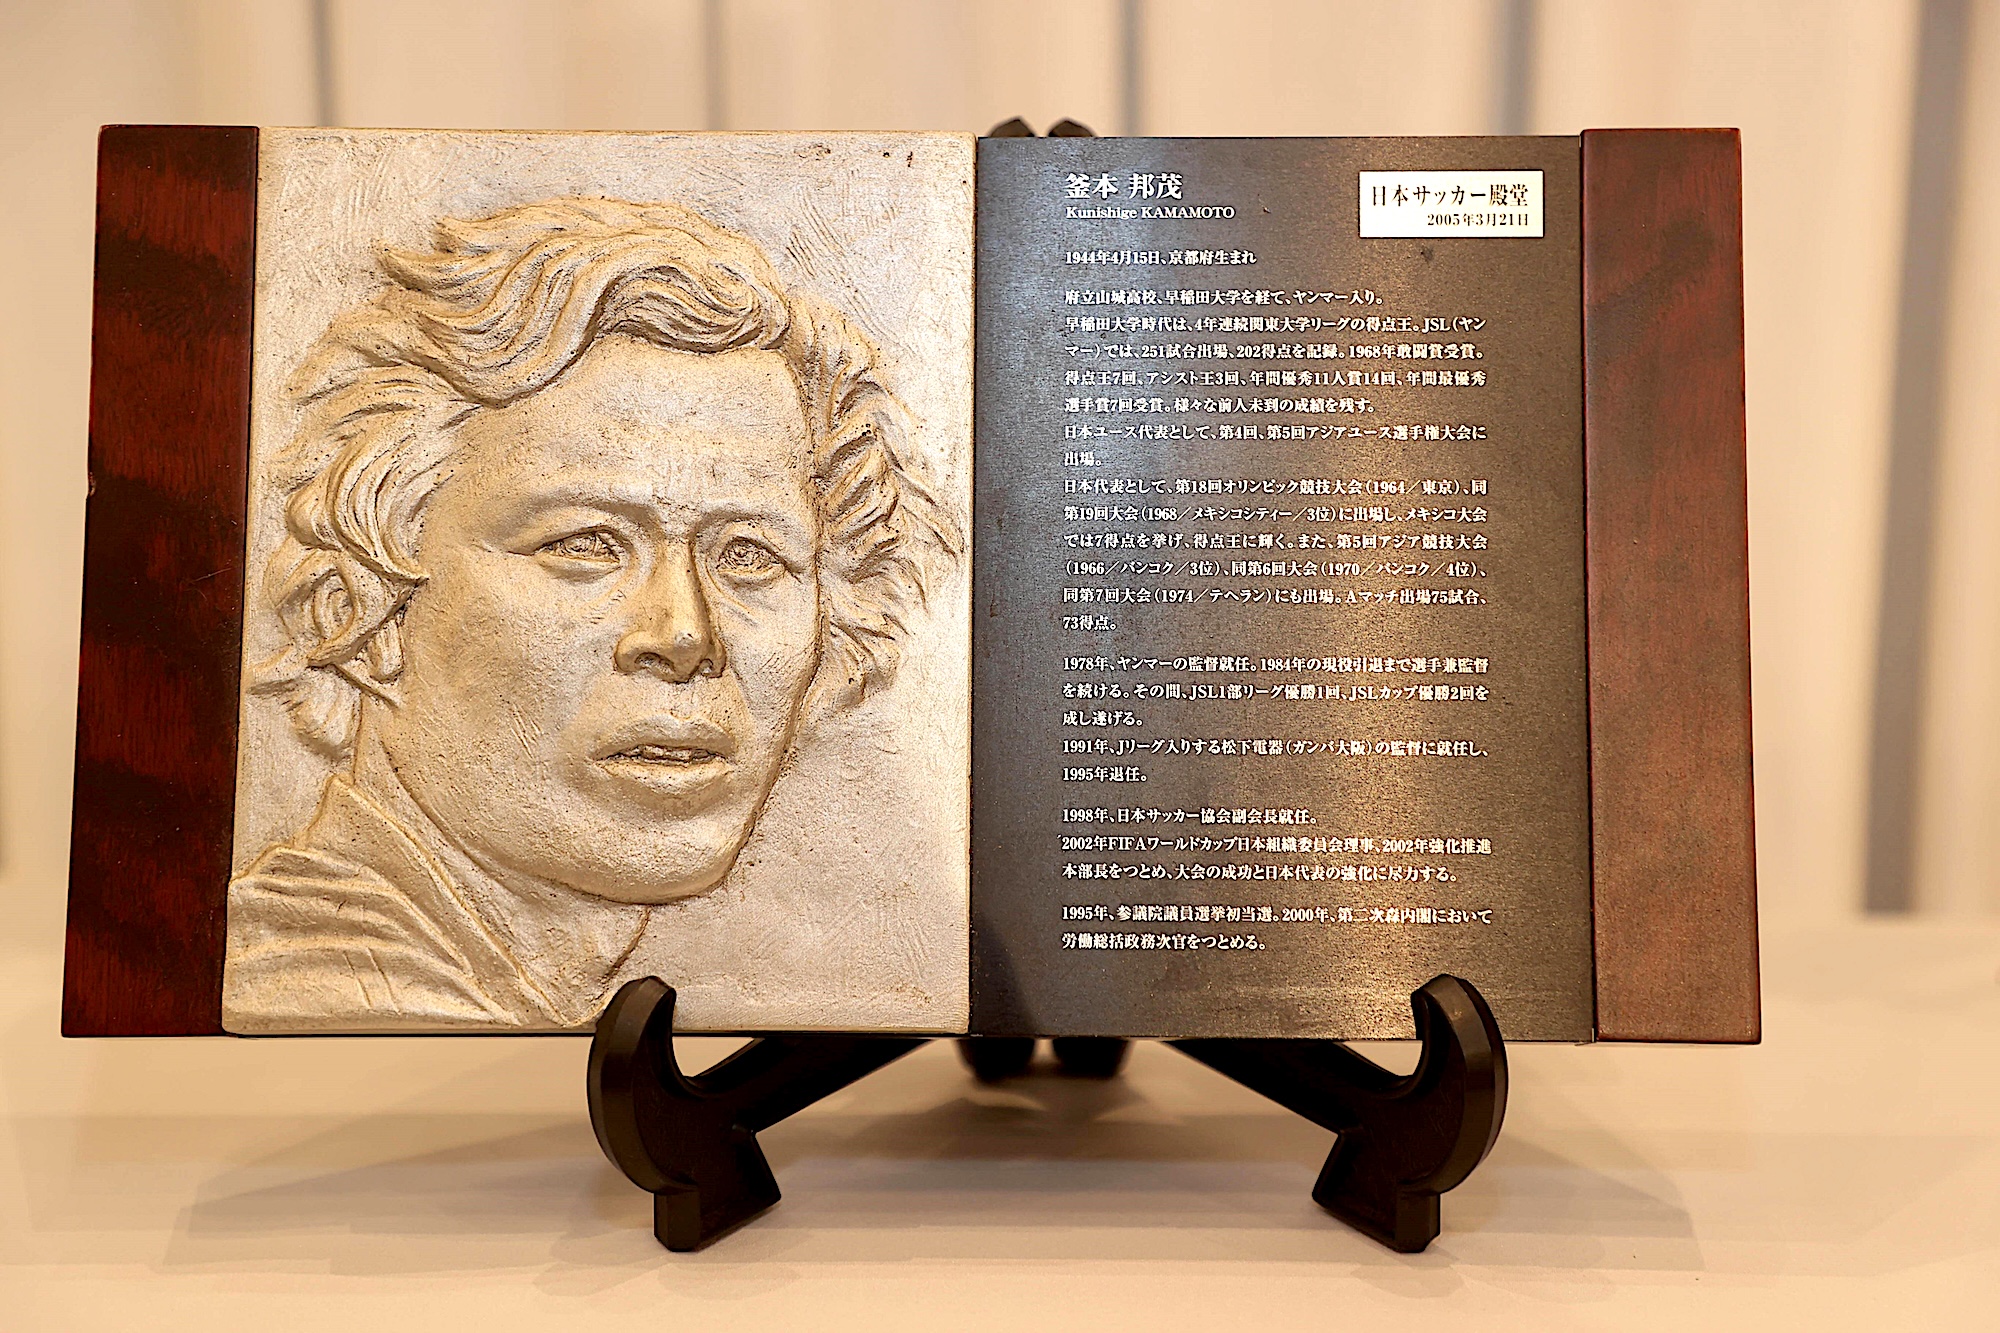 釜本 邦茂
Kunishige KAMAMOTO
日本サッカー殿堂
2005年3月21日
1944年4月15日、京都府生まれ
府立山城高校、早稲田大学を経て、ヤンマー入り。
早稲田大学時代は、4年連続関東大学リーグの得点王。JSL(ヤン
マー)では、251試合出場、202得点を記録。1968年敢闘賞受賞。
得点王7回、アシスト王3回、年間優秀11人賞14回、年間最優秀
選手賞7回受賞。様々な前人未到の成績を残す。
日本ユース代表として、第4回、第5回アジアユース選手権大会に
出場。
日本代表として、第18回オリンピック競技大会(1964/東京)、同
第19回大会(1968/メキシコシティー/3位)に出場し、メキシコ大会
では7得点を挙げ、得点王に輝く。また、第5回アジア競技大会
(1966/バンコク/3位)、同第6回大会(1970/バンコク/4位)、
同第7回大会(1974/テヘラン)にも出場。Aマッチ出場75試合、
73得点。
1978年、ヤンマーの監督就任。1984年の現役引退まで選手兼監督
を続ける。その間、JSL1部リーグ優勝1回、JSLカップ優勝2回を
成し遂げる。
1991年、Jリーグ入りする松下電器(ガンバ大阪)の監督に就任し、
1995年退任。
1998年、日本サッカー協会副会長就任。
2002年FIFAワールドカップ日本組織委員会理事、2002年強化推進
本部長をつとめ、大会の成功と日本代表の強化に尽力する。
1995年、参議院議員選挙初当選。2000年、第二次森内閣において
労働総括政務次官をつとめる。